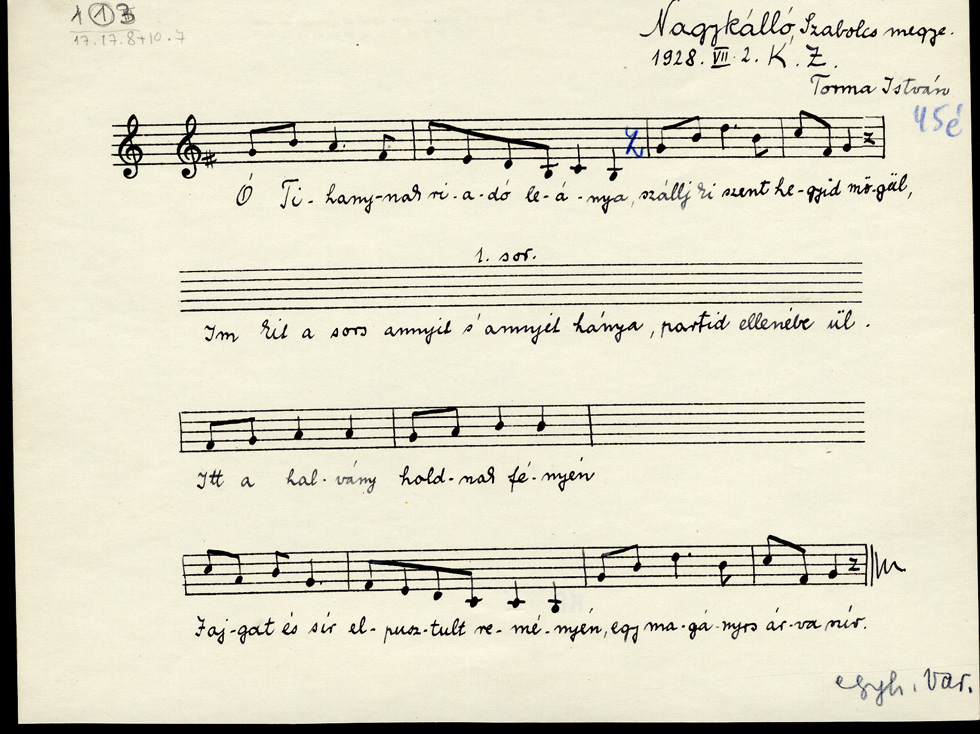 1 1 3
17.17.8+10.7
Nagykálló, Szabolcs megye.
1928. VII. 2. K. Z.
Torma István
45é
Ó Ti-hany-nak ri-a-dó le-á-nya, szállj ki szent he-gyid mö-gül,
1. sor.
Im kit a sors annyit s' annyit hánya, partid ellenébe ül.
Itt a hal-vány hold-nak fé-nyén
Jaj-gat és sír el-pusz-tult re-mé-nyén, egy ma-gá-nyos ár-va szív.
egyh. var.